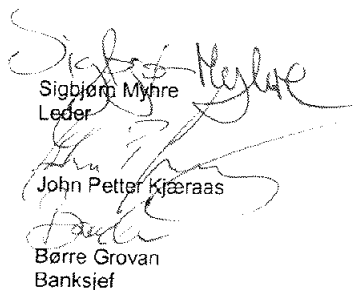 Sigbjørn Myhre
Sigbjørn Myhre
Leder
John Petter Kjæraas
Børre Grovan
Banksjef